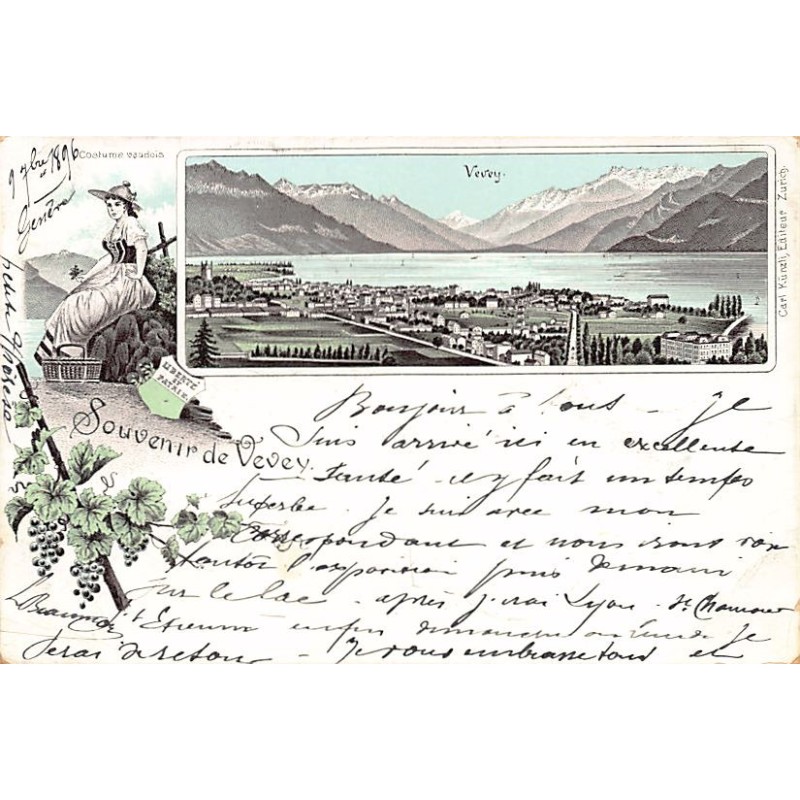 9 7bre 1896
Genève
Costume vaudois
Vevey.
Carl Künzli, Editeur Zurich.
LIBERTÉ
ET
PATRIE.
Souvenir de Vevey.
Bonjour à tous – Je
suis arrivé ici en excellente
santé il y fait un temps
superbe. Je suis avec mon
correspondant et nous irons voir
tantôt l'exposition puis demain
sur le lac – après j'irai Lyon – St Chamond
St Etienne enfin dimanche Je
serai de retour – Je vous embrasse tous et
petit